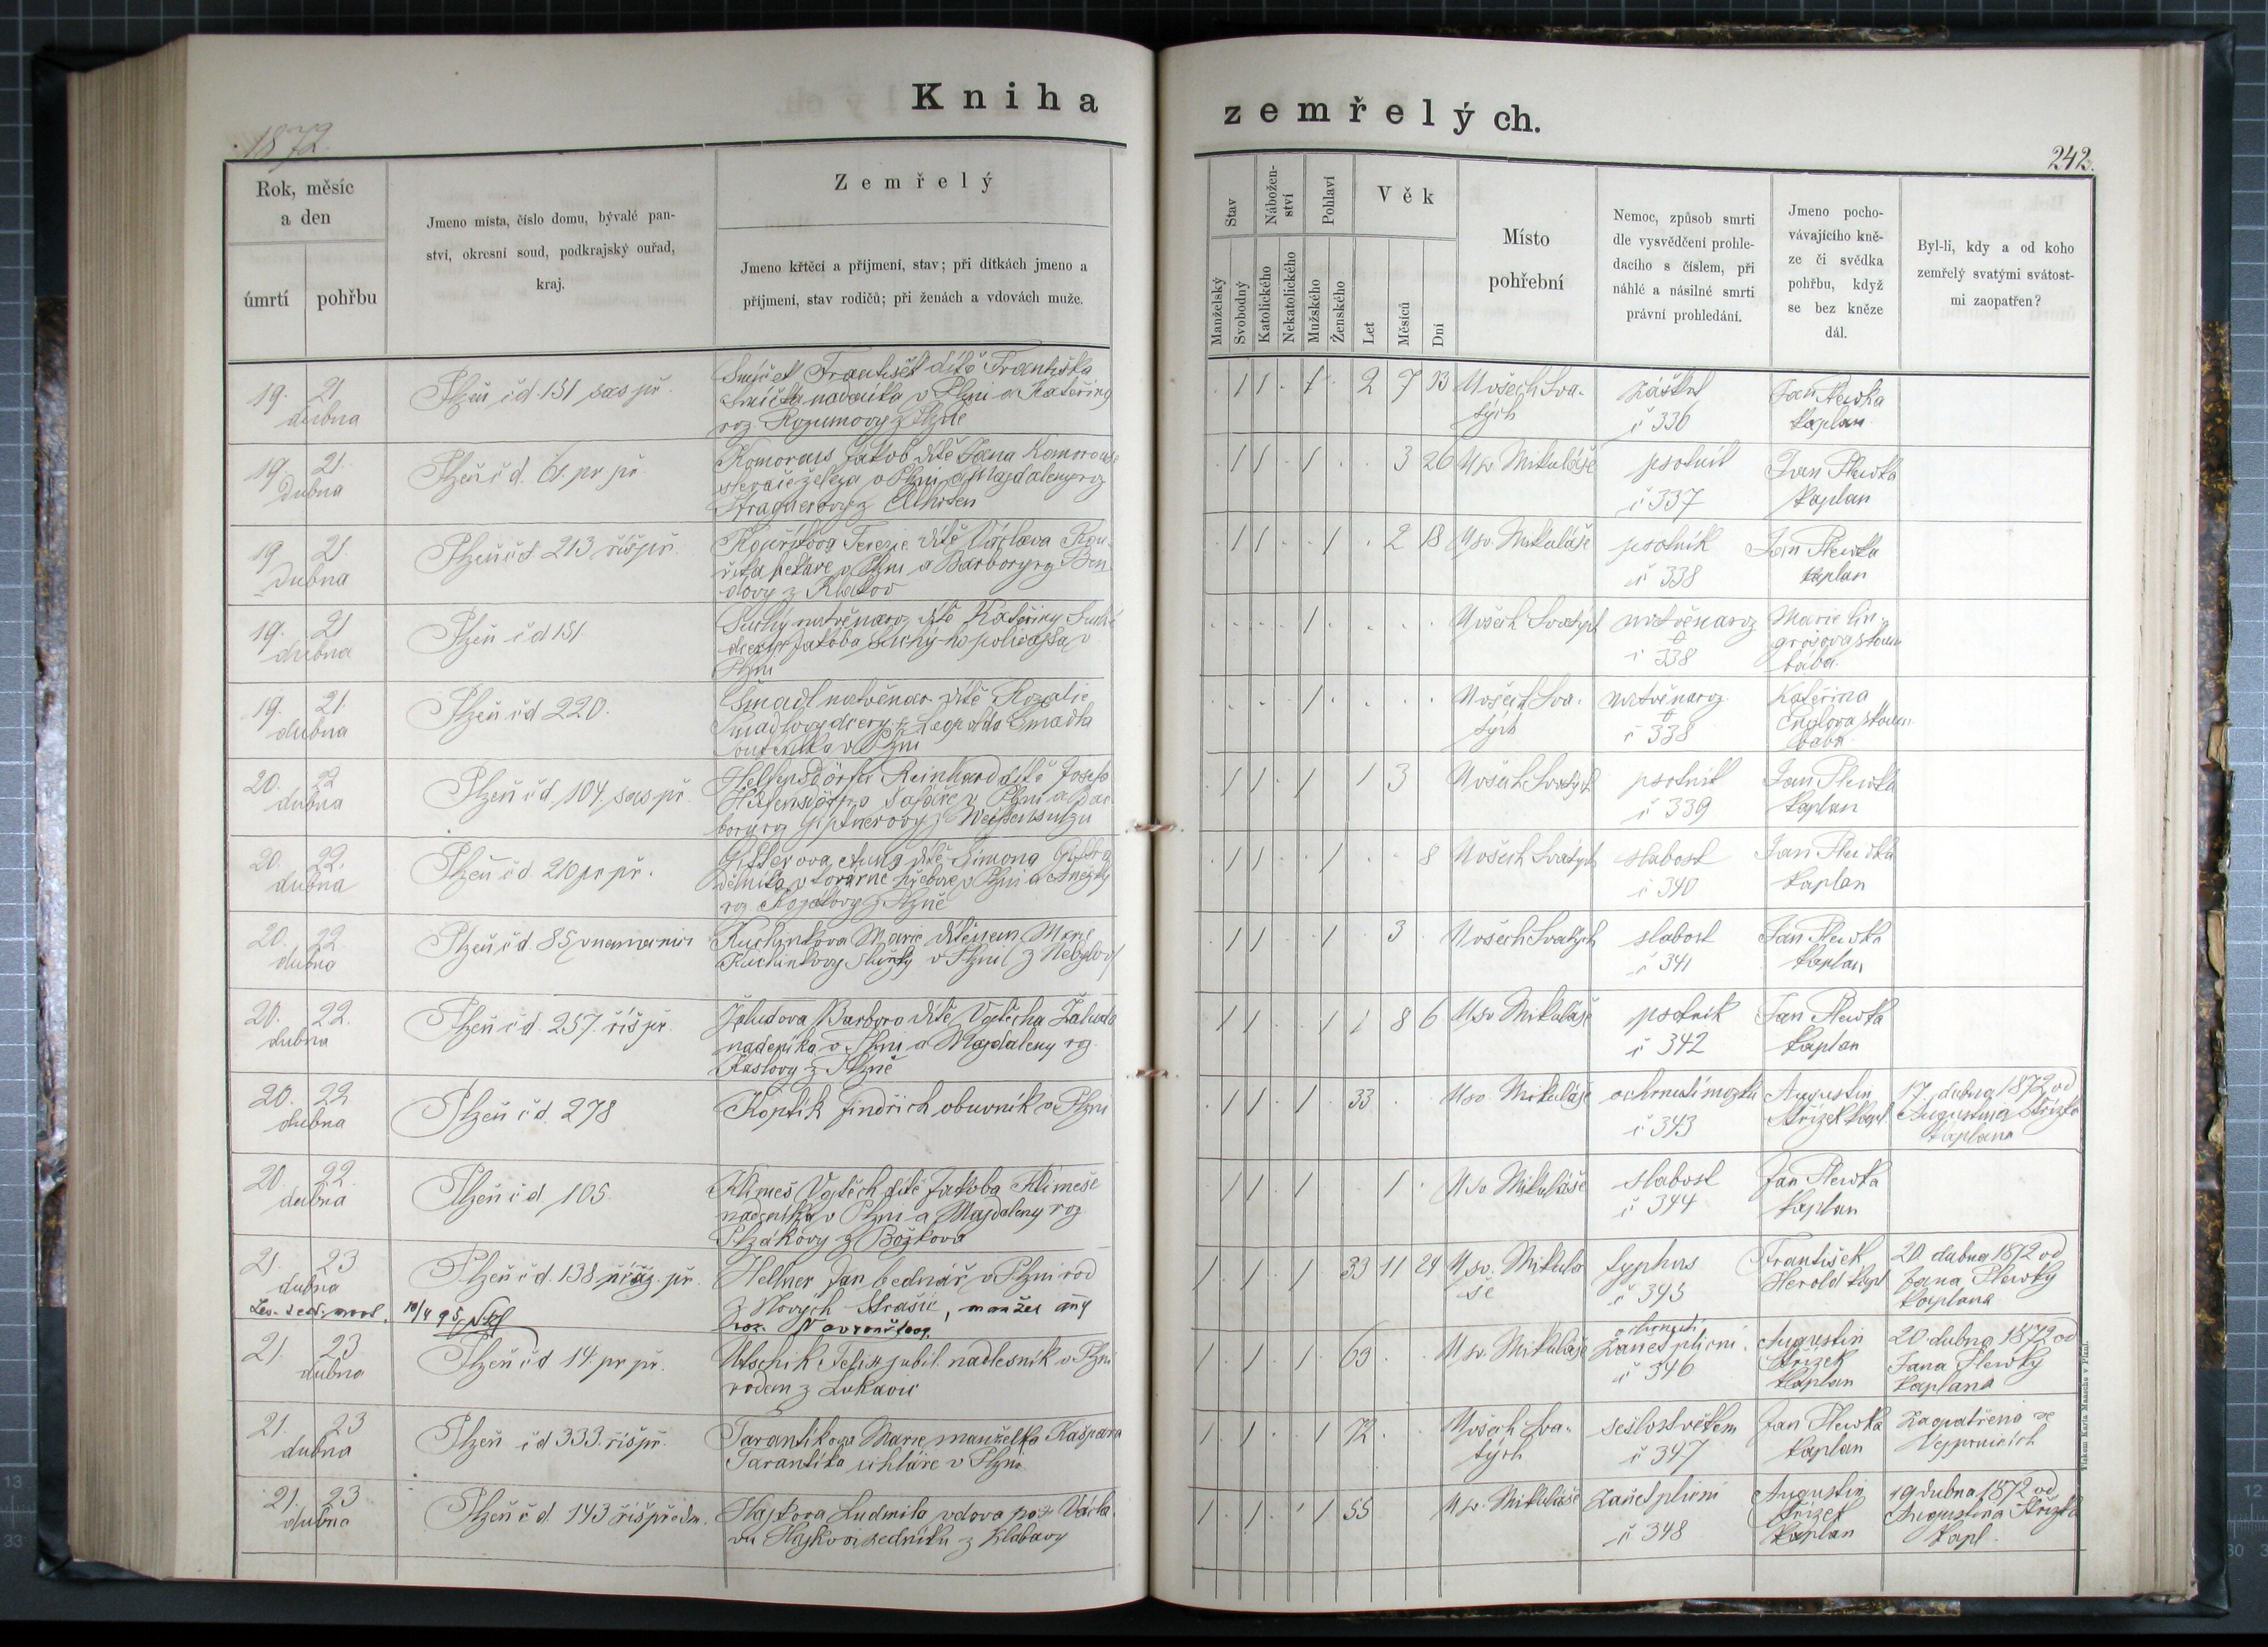 Kniha
zemřelých.
1872.
242.
Rok, měsíc
a den
úmrtí
pohřbu
Jmeno místa, číslo domu, bývalé pan-
ství, okresní soud, podkrajský ouřad,
kraj.
Zemřelý
Jmeno křtěcí a příjmení, stav; při dítkách jmeno a
příjmení, stav rodičů; při ženách a vdovách muže.
Stav
Nábožen-
ství
Pohlaví
Věk
Manželský
Svobodný
Katolického
Nekatolického
Mužského
Ženského
Let
Měsíců
Dní
Místo
pohřební
Nemoc, způsob smrti
dle vysvědčení prohle-
dacího s číslem, při
náhlé a násilné smrti
právní prohledání.
Jmeno pocho-
vávajícího kně-
ze či svědka
pohřbu, když
se bez kněze
dál.
Byl-li, kdy a od koho
zemřelý svatými svátost-
mi zaopatřen?
19. 21
dubna
Plzeň čd. 151 sas př.
František dítě Františka
nadeníka v Plzni a Kateřiny
roz Rozumovy z Plzně
2 7 13
U všech Sva-
tých
záškrt
č 336
Jan Plewka
kaplan
19. 21.
dubna
Plzeň č d. 61. pr př.
Komoraus Jakob dítě Jana Komorouse
v Plzni a Magdaleny roz
3 26
U sv. Mikuláše
psotník
č 337
Jan Plewka
kaplan
19 21.
dubna
Plzeň čd 213 říš př.
Kouříková Terezie dítě Václava Kou-
říka pekaře v Plzni a Barbory roz Ben
dovy z Klatov
2 18
U sv. Mikuláše
psotník
č 338
Jan Plewka
kaplan
19. 21
dubna
Plzeň č d 151
Suchý mrtvěnaroz dítě Kateřiny Suché
dcery Jakoba Suchý v
Plzni
U všech Svatých
mrtvěnaroz
č 338
Marie
bába.
19. 21.
dubna
Plzeň čd 220.
Šmadl mrtvěnar. dítě Rozalie
Šmadlovy dcery Leopolda Šmadla
v Plzni
U všech Sva-
tých
mrtvěnaroz
č 338
Kateřina
bába
20. 22
dubna
Plzeň čd. 104. sas př.
Reinhard dítě Josefa
v Plzni a Bar
bory roz
1 3
U všech Svatých
psotník
č 339
Jan Plewka
kaplan
20. 22.
dubna
Plzeň č d. 210 pr př.
Anna dítě Šimona
dělníka v továrně v Plzni a Anežky
roz z Plzně
8
U všech Svatých
slabost
č 340
Jan Plewka
kaplan
20. 22.
dubna
Plzeň č d. 85 v nemocnici
Kuchinkova Marie dítě nem Marie
Kuchinkovy služky v Plzni z Nebylov
3
U všech Svatých
slabost
č 341
Jan Plewka
kaplan
20. 22.
dubna
Plzeň č d. 257. říš př.
Žaludova Barbora dítě Vojtěcha Žaluda
nadeníka v Plzni a Magdaleny roz.
Kaslovy z Plzně
1 8 6
U sv Mikuláše
psotník
č 342
Jan Plewka
kaplan
20. 22.
dubna
Plzeň č d. 278
Koptik Jindřich obuvník v Plzni
33
U sv. Mikuláše
ochrnutí mozku
č 343
Augustin
Střízek kapl.
17. dubna 1872 od
Augustina Střízka
kaplana
20. 22.
dubna
Plzeň č d. 105
Klimeš Vojtěch dítě Jakoba Klimeše
nadeníka v Plzni a Magdaleny roz
Plzákovy z Božkova
1
U sv Mikuláše
slabost
č 344
Jan Plewka
kaplan
21. 23
dubna
Plzeň č d. 138 praz. př.
Hellner Jan bednář v Plzni rod
z Nových Strašic, manžel Anny
33 11 24
U sv. Mikulá
še
typhus
č 345
František
Herold kapl
20. dubna 1872 od
Jana Plewky
kaplana
21. 23
dubna
Plzeň čd 14. pr př.
Utschik Felix jubil. nadlesník v Plzni
rodem z Lukavic
69
U sv. Mikuláše
ochrnutí
Zánět plicní.
č 346
Augustin
Střízek
kaplan
20. dubna 1872 od
Jana Plewky
kaplana
21. 23
dubna
Plzeň čd 333. říš př.
Tarantíkova Marie manželka Kašpara
Tarantíka uhláře v Plzni
72
U všech Sva-
tých
sešlost věkem
č 347
Jan Plewka
kaplan
Zaopatřena ve
Vejprnicích
21. 23
dubna
Plzeň č d. 143 říš předm.
Hajkova Ludmila vdova po Václa-
vu Hajkovi sedníku z Klabavy
55
U sv. Mikuláše
Zánět plicní
č 348
Augustin
Střízek
kaplan
19 dubna 1872 od
Augustina Střízka
kapl.